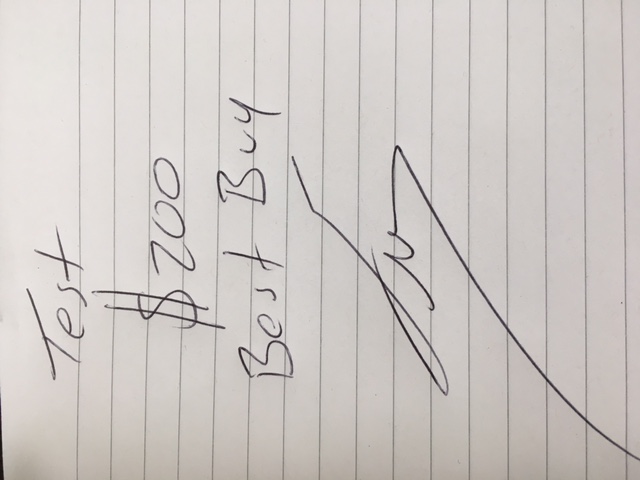 Test
$200
Best Buy